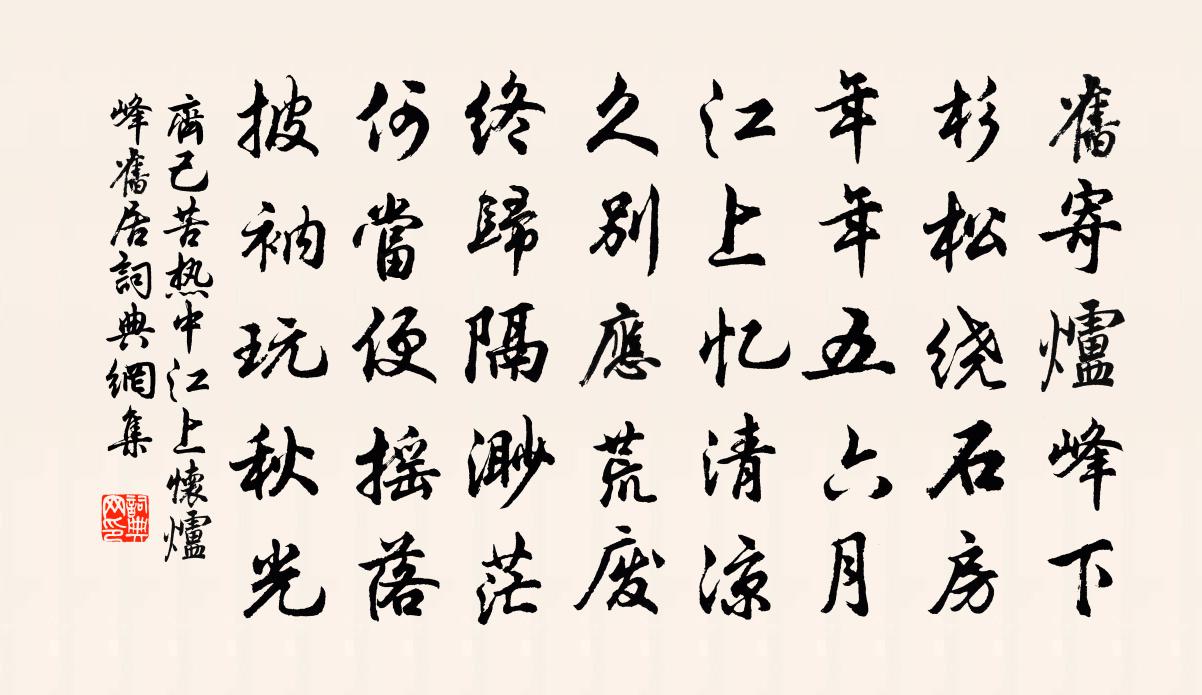 舊寄爐峰下
杉松绕石房
年年五六月
江上忆清涼
久别應荒废
终歸隔渺茫
何當便摇落
披衲玩秋光
齊己苦热中江上懷爐
峰舊居詞典網集
詞典
网印